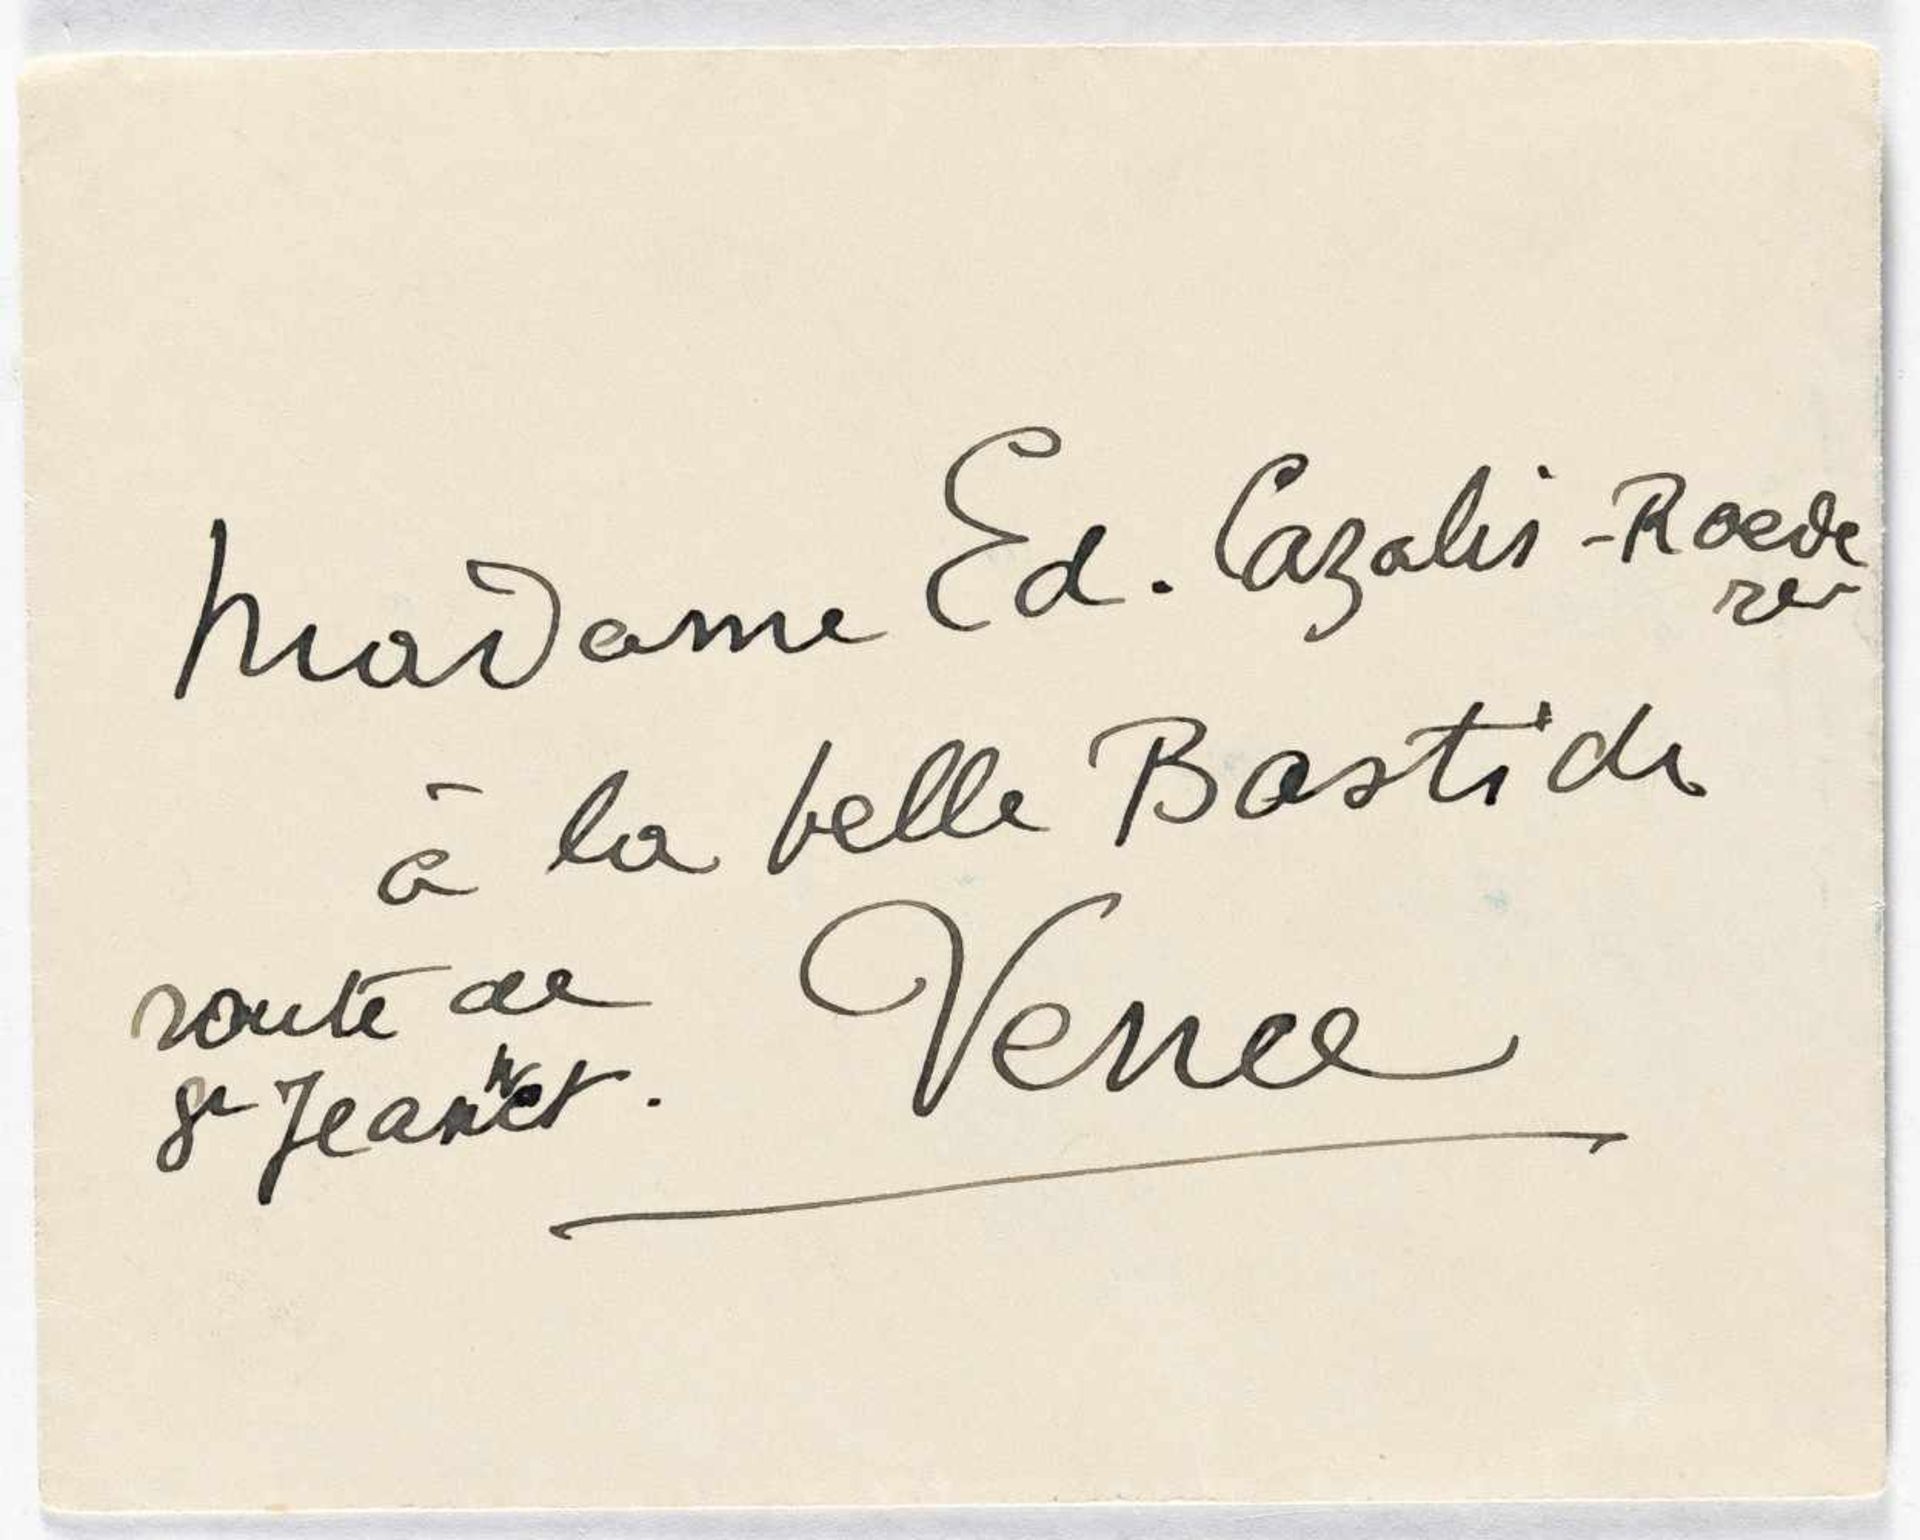 Madame Ed. Cazalis-Roede
rer
à la belle Bastide
Vence
route de
St Jeannet.